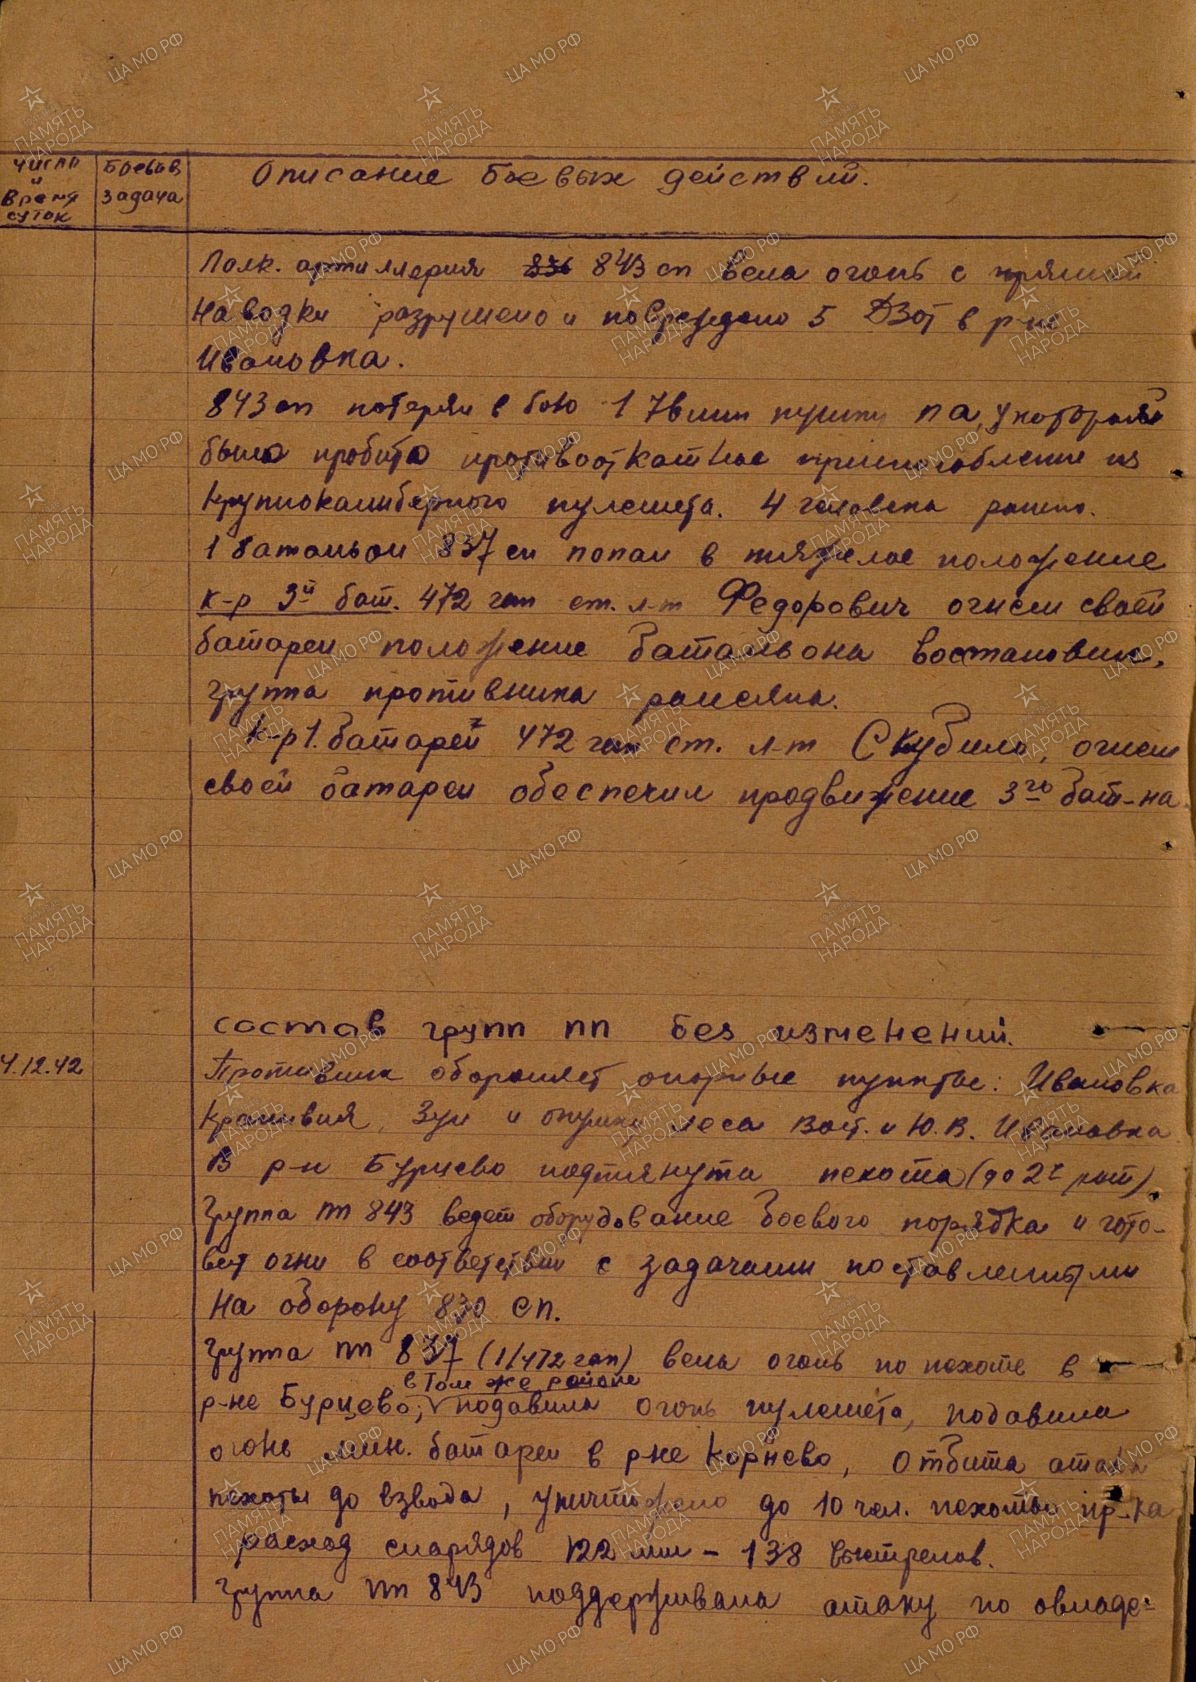 Число и время суток
Боевая задача
Описание боевых действий.
Полк. артиллерия 843 сп вела огонь с прямой
наводки разрушено и повреждено 5 ДЗОТ в р-не
Ивановка.
843 сп потерял в бою 1 76мм пушку ПА, у которой
было пробито противооткатное приспособление из
крупнокалиберного пулемета. 4 человека ранено.
1 батальон 837 сп попал в тяжелое положение
к-р 3й бат. 472 гап ст. л-т Федорович огнем своей
батареи положение батальона востановил,
группа противника рассеяна.
К-р 1. батареи 472 гап ст. л-т Скубило, огнем
своей батареи обеспечил продвижение 3го бат-на
состав групп ПП без изменений.
4.12.42
Противник обороняет опорные пункты: Ивановка
Крапивня, Зуи и опушки леса Вост. и Ю.В. Ивановка
В р-н Бурцево подтянута пехота (до 2х рот).
Группа ПП 843 ведет оборудование боевого порядка и гото-
вит огни в соответствии с задачами поставленными
на оборону 830 сп.
Группа ПП 837 (1/472 гап) вела огонь по пехоте в
р-не Бурцево; в том же районе подавила огонь пулемета, подавила
огонь мин. батареи в р-не Корнево, отбита атака
пехоты до взвода, уничтожено до 10 чел. пехоты пр-ка
расход снарядов 122 мм - 138 выстрелов.
Группа ПП 843 поддерживала атаку по овладе-
ЦА МО РФ
ПАМЯТЬ НАРОДА